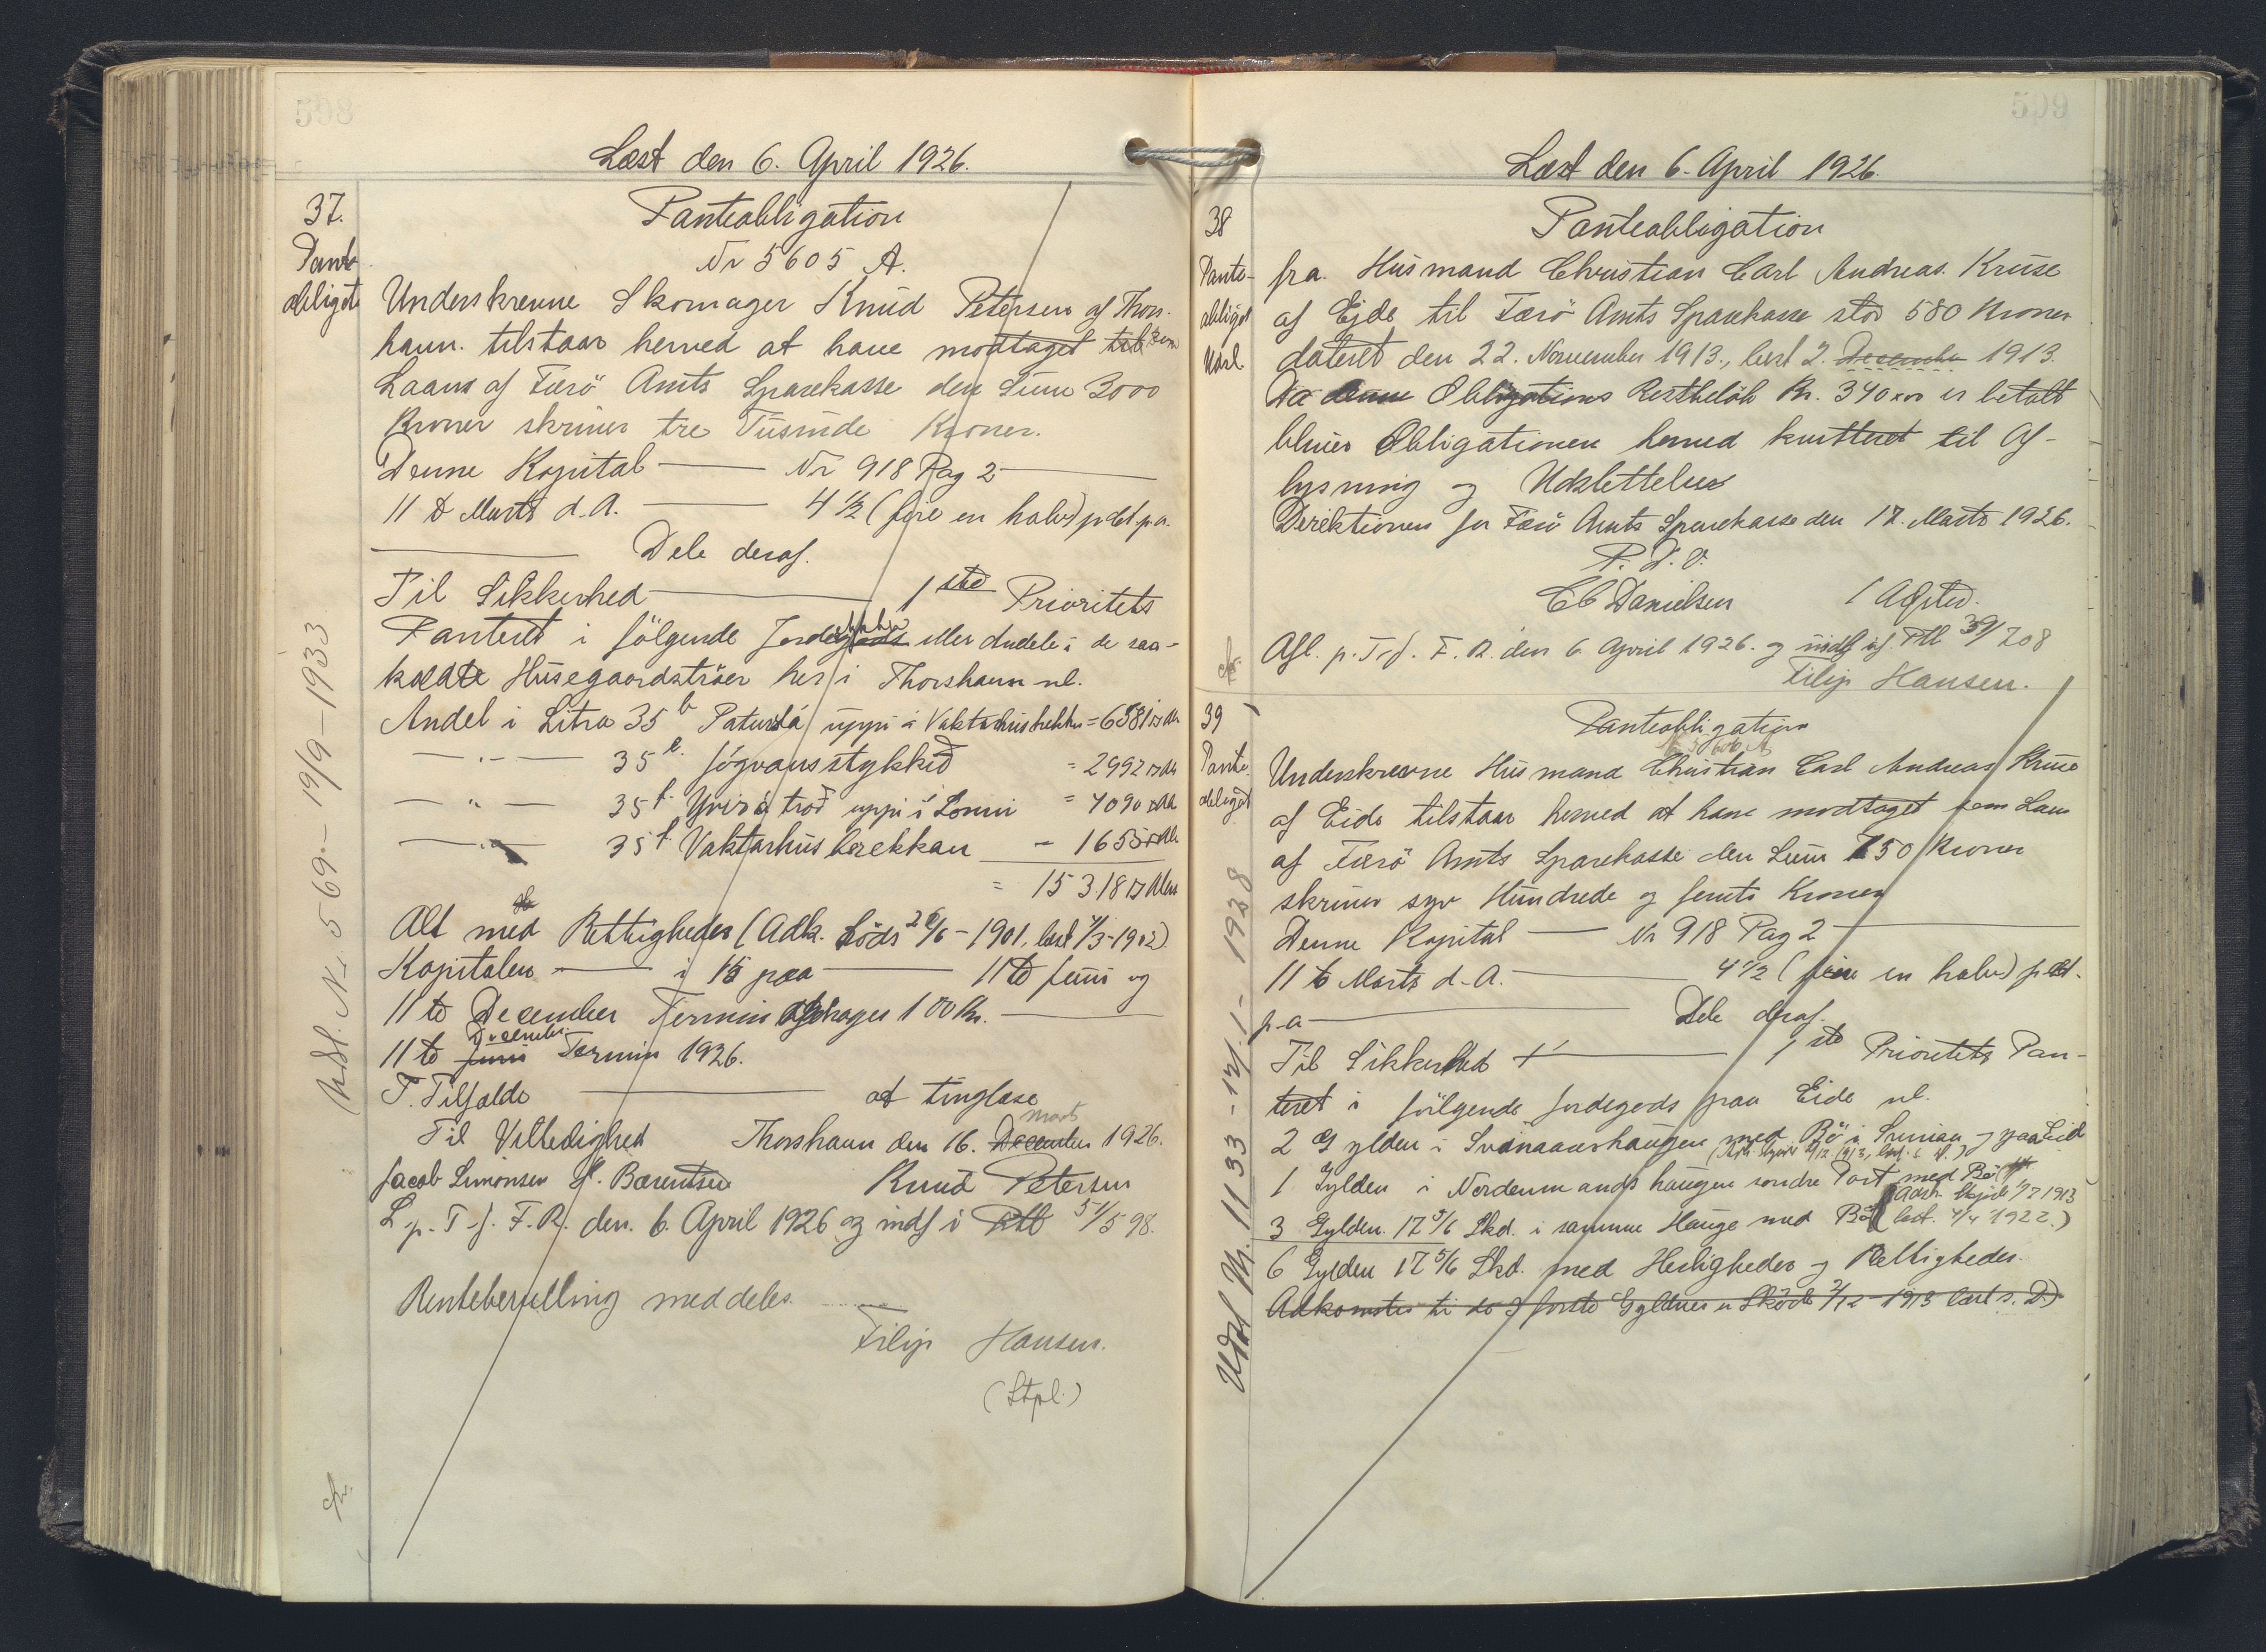 598
Læst den 6. April 1926.
37.
Pante
obligat
Panteobligation
Nr 5605 A.
Underskrevne Skomager Knud Petersen af Thors-
havn. tilstaar herved at have modtaget til som
Laans af Færö Amts Sparekasse den Sum 3000
Kroner skriver tre Tusinde Kroner.
Denne Kapital — Nr 918 Pag 2 —
11 te Marts d.A. — 4 1/2 (fire en halv) pCt p.a.
— Dele deraf.
Til Sikkerhed — 1 ste Prioritets
Panteret i fölgende Jordegods eller Andele i de saa-
kaldte Husegaardströer her i Thorshavn nl.
Andel i Litra 35 b Paturslá uppi á Vaktarhusbrekku = 6581 □ Al.
— " — 35 e. Jógvansstykkið = 2992 □ Al.
— " — 35 f. Yvirá trøð uppi í Lonni = 4090 □ Al.
— " — 35 f. Vaktarhúsbrekkan — 1655 □ Al.
= 15318 □ Alen
Alt med Rettigheder (Adk. Sköds 26/6 - 1901, læst 4/3-1902)
Kapitalen — i 15 paa — 11 te Juni og
11 te December Termin afdrages 100 Kr. —
11 te Juni December Termin 1926.
I Tilfælde — at tinglæse
Til Vitterlighed Thorshavn den 16. December Marts 1926.
Jacob Simonsen H. Bærentsen Knud Petersen
L. p. T. f. F. R. den. 6. April 1926 og indf i Ptb 51/598.
Renteberegning meddeles.
Filip Hansen.
(Stpl.)
Udsl. Nr 569 - 19/9 - 1933
599
Læst den 6. April 1926.
38
Pante-
obligat
Udsl.
Panteobligation
fra Husmand Christian Carl Andreas Kruse
af Ejde til Færö Amts Sparekasse stor 580 Kroner
dateret den 22. November 1913., læst 2. December 1913.
Da denne Obligations Restbelöb Kr. 340 xx er betalt
bliver Obligationen herved kvitteret til Af-
lysning og Udslettelse
Direktionen for Færö Amts Sparekasse den 17. Marts 1926.
P. D. V.
C C Danielsen / A
Afl. p. T. f. F. R. den 6. April 1926. og indf i Ptb 39/208
Filip Hansen.
39
Pante
obligat
Panteobligation
Nr 5606 A
Underskrevne Husmand Christian Carl Andreas Kruse
af Eide tilstaar herved at have modtaget som Laan
af Færö Amts Sparekasse den Sum 750 Kroner
skriver syv Hundrede og femti Kroner
Denne Kapital — Nr 918 Pag 2 —
11 te Marts d.A. — 4 1/2 (fire en halv) pCt.
p.a — Dele deraf.
Til Sikkerhed — 1 ste Prioritets Pan-
teret i fölgende Jordegods paa Eide nl.
2 Gylden i Svinaaarshaugen med Bö i
1 Gylden i Nordenmandshaugen söndre Part med Bö
(Adk. Skjöde 1/2 1913
3 Gylden 17 5/6 Skd. i samme Hauge med Bö læst. 4/4 1922.)
6 Gylden 17 5/6 Skd. med Herligheder og Rettigheder.
Adkomsten til de 3 forste Gylden er Sköde 2/12 - 1913 læst s. D.)
Udsl Nr. 1133 - 14/1 - 1928